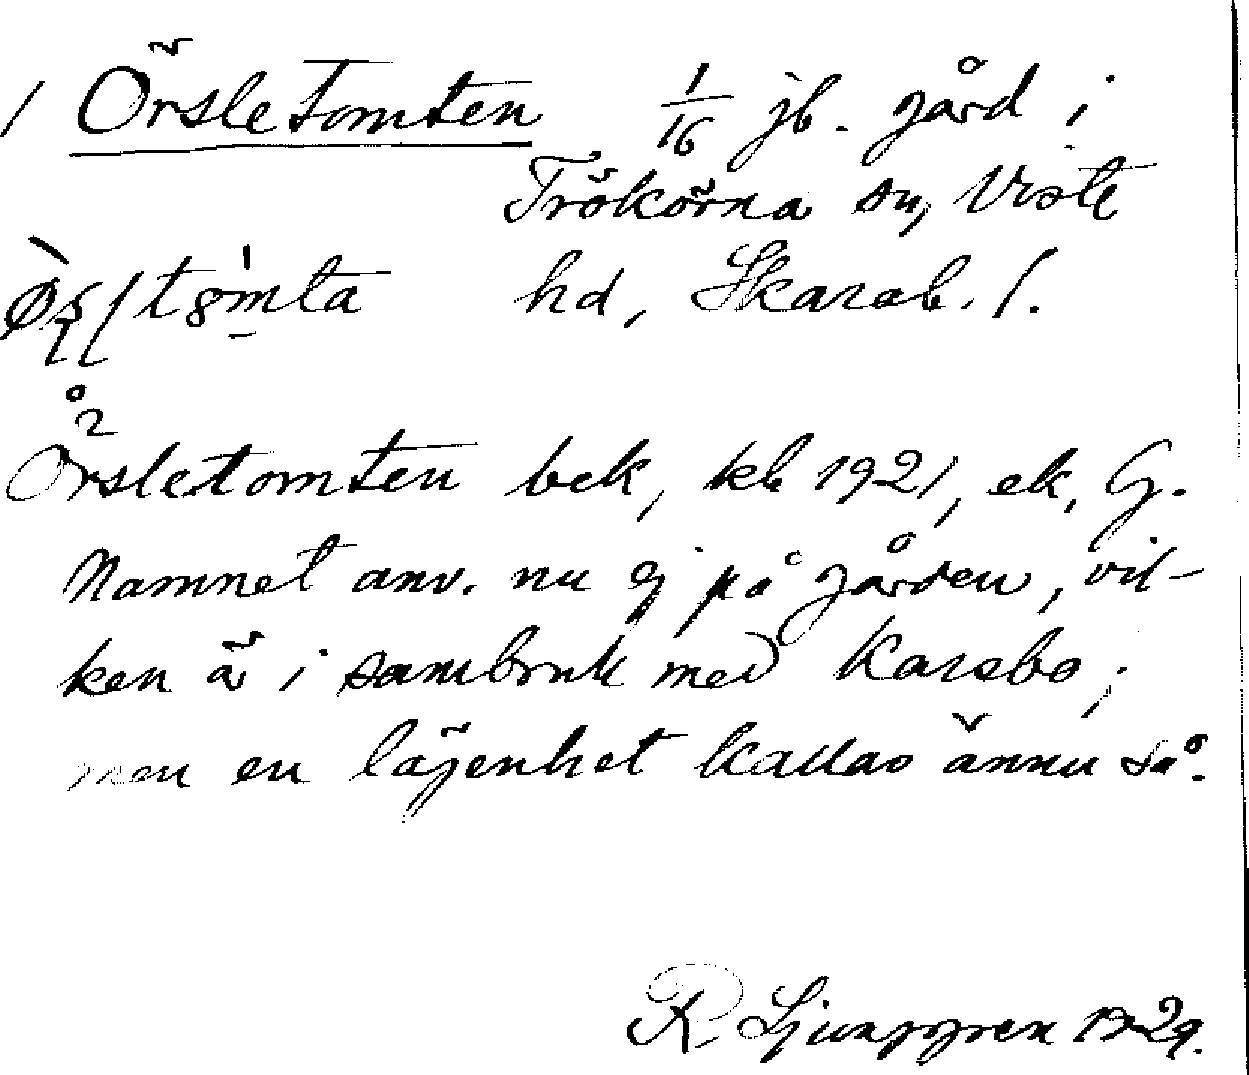 / Örsletomten 1/16 jb. gård i
Trökörna sn, Viste
hd, Skarab. l.
Örsletomten bek, kb 1921, ek, G.
Namnet anv. nu ej på gården, vil-
ken är i sambruk med Karsbo;
men en lägenhet kallas ännu så.
R. Ljunggren 1929.